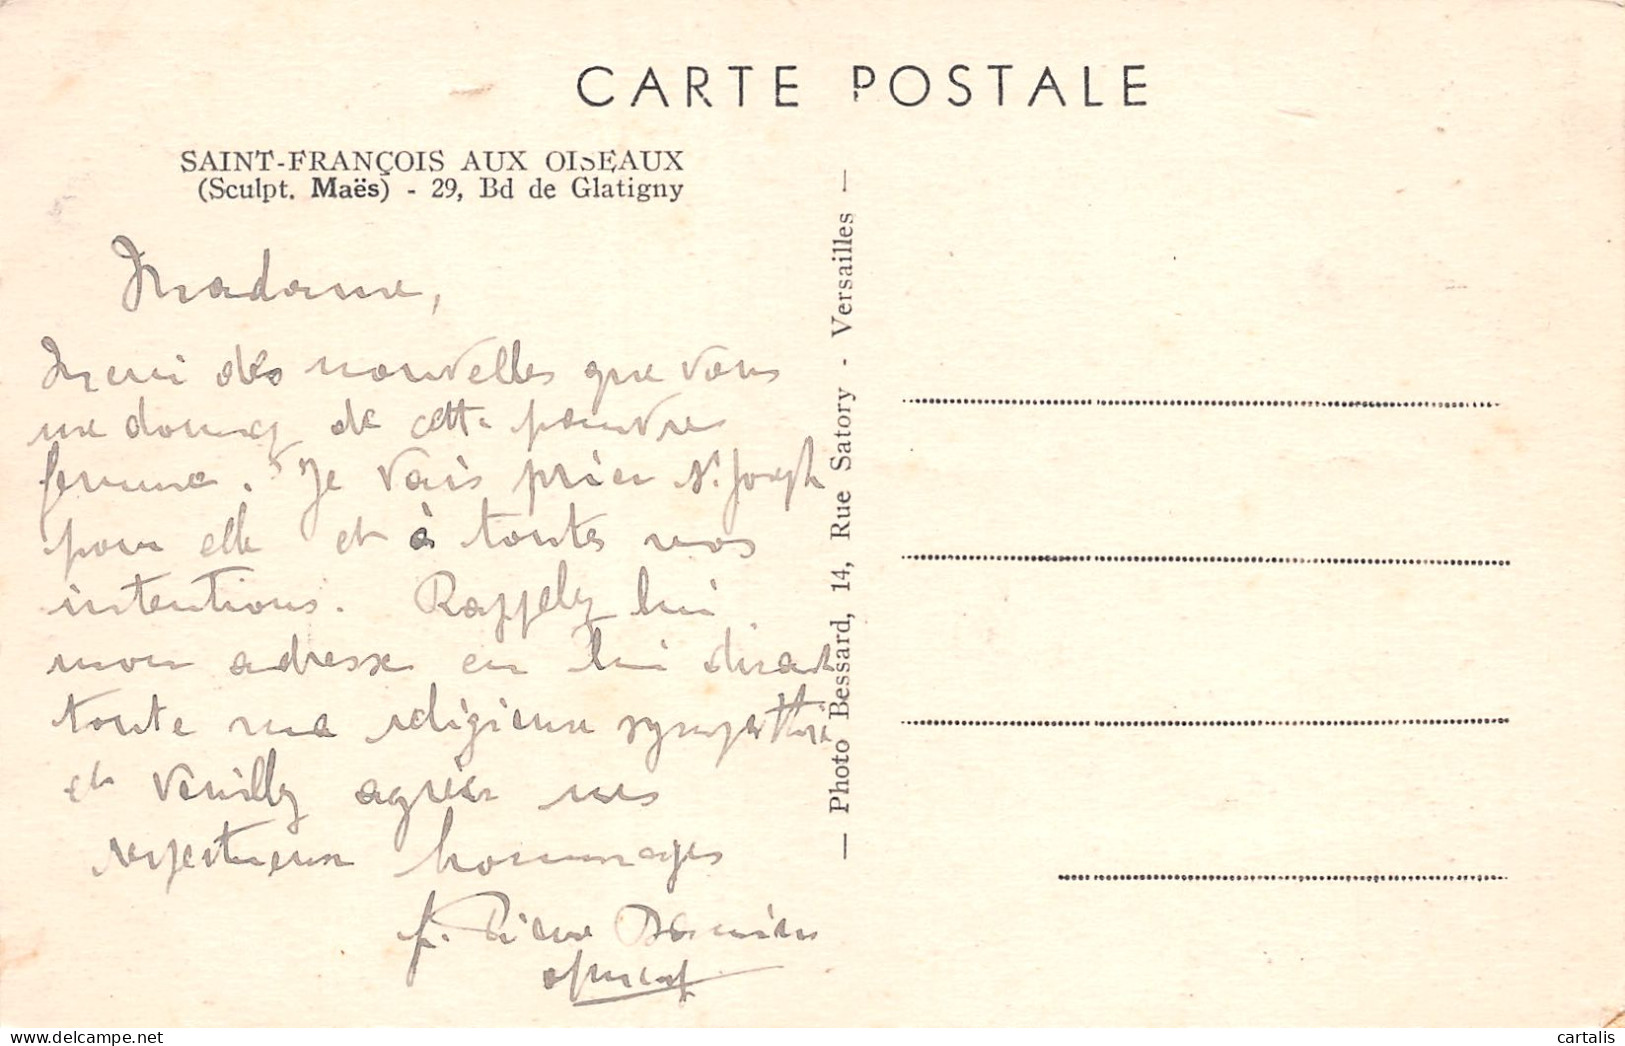 CARTE POSTALE
SAINT-FRANÇOIS AUX OISEAUX
(Sculpt. Maës) - 29, Bd de Glatigny
Madame,
Merci des nouvelles que vous
me donnez de cette pauvre
femme. Je vais prier St. Joseph
pour elle et à toutes vos
intentions. Rappelez lui
mon adresse en lui disant
toute ma religieuse sympathie
et veuillez agréer mes
respectueux hommages
f. Pierre Damien
— Photo Bessard, 14, Rue Satory - Versailles —
cartalis